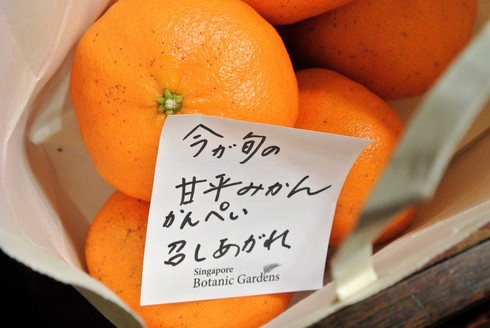 今が旬の
甘平みかん
かんぺい
召しあがれ
Singapore
Botanic Gardens